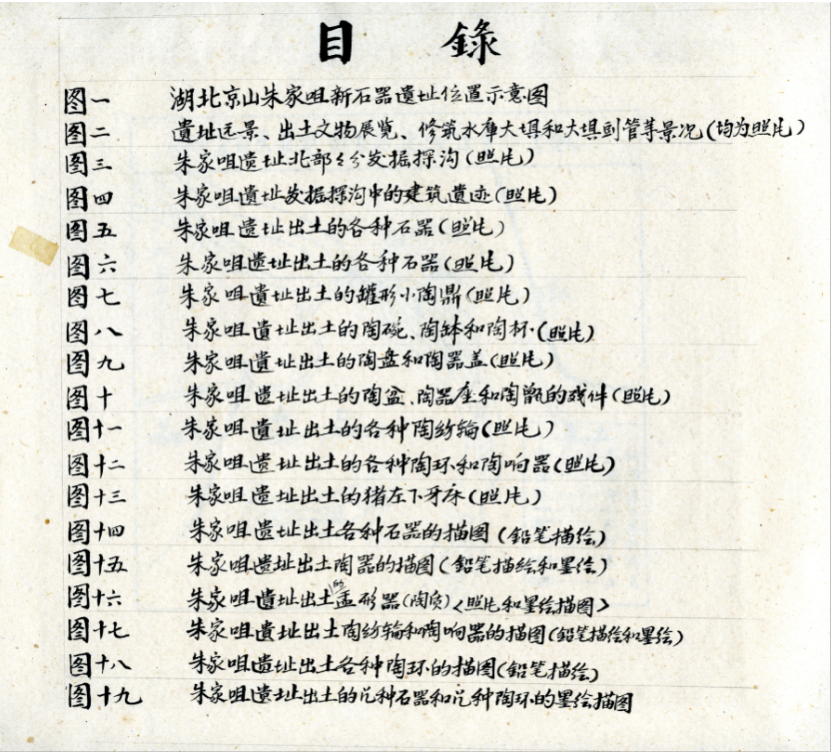 目 錄
图一 湖北京山朱家咀新石器遺址位置示意图
图二 遺址远景、出土文物展览、修筑水庫大埧和大埧剅管等景况(均为照片)
图三 朱家咀遺址北部々分发掘探沟(照片)
图四 朱家咀遺址发掘探沟中的建筑遺迹(照片)
图五 朱家咀遺址出土的各种石器(照片)
图六 朱家咀遺址出土的各种石器(照片)
图七 朱家咀遺址出土的罐形小陶鼎(照片)
图八 朱家咀遺址出土的陶碗、陶缽和陶杯(照片)
图九 朱家咀遺址出土的陶盘和陶器盖(照片)
图十 朱家咀遺址出土的陶盆、陶器座和陶甑的残件(照片)
图十一 朱家咀遺址出土的各种陶纺輪(照片)
图十二 朱家咀遺址出土的各种陶环和陶响器(照片)
图十三 朱家咀遺址出土的猪左下牙床(照片)
图十四 朱家咀遺址出土各种石器的描图(鉛笔描绘)
图十五 朱家咀遺址出土陶器的描图(鉛笔描绘和墨绘)
图十六 朱家咀遺址出土的盂形器(陶质)<照片和墨绘描图>
图十七 朱家咀遺址出土陶纺輪和陶响器的描图(鉛笔描绘和墨绘)
图十八 朱家咀遺址出土各种陶环的描图(鉛笔描绘)
图十九 朱家咀遺址出土的几种石器和几种陶环的墨绘描图